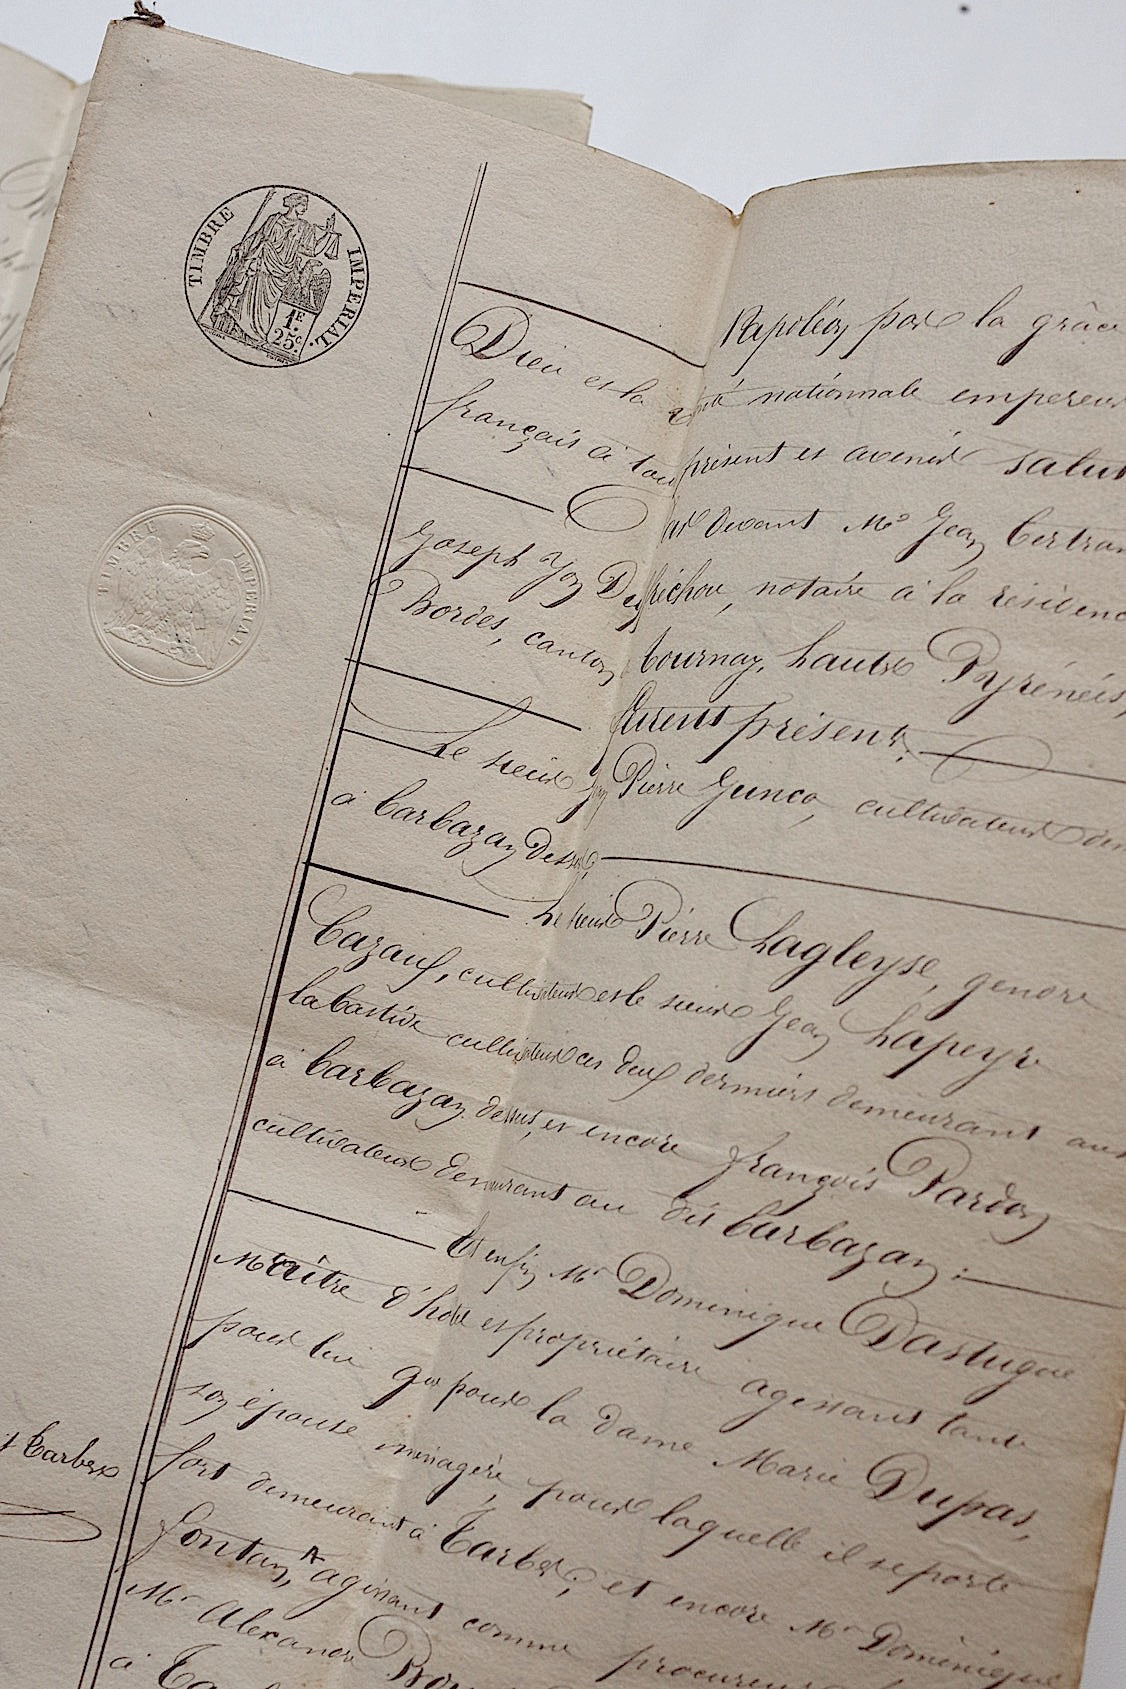 TIMBRE IMPERIAL
1F.
25c.
TIMBRE IMPERIAL
Napoléon par la grâce
Dieu et la nationnale empereur
français à tous présent et avenir salut
Par devant Me Jean Bertrand
Joseph notaire à la résidence
Bordes, canton tournay, hautes Pyrénées,
furent présent.
Le sieur Pierre cultivateur
à barbazan dessus,
Le sieur Pierre Lagleyse, gendre
Cazaux, cultivateur et le sieur Jean Lapeyre
labastide cultivateur ces deux derniers demeurant aussi
à barbazan dessus, et encore françois Pardon
cultivateur demeurant au dit barbazan;
Et enfin Mr Dominique Dastugue
Maître d'hotel et propriétaire agissant tant
pour lui que pour la dame Marie Dupas,
son épouse ménagère, pour laquelle il se porte
fort demeurant à Tarbes; et encore Mr Doménique
fontan, agissant comme
Mr Alexandre
à
Tarbes